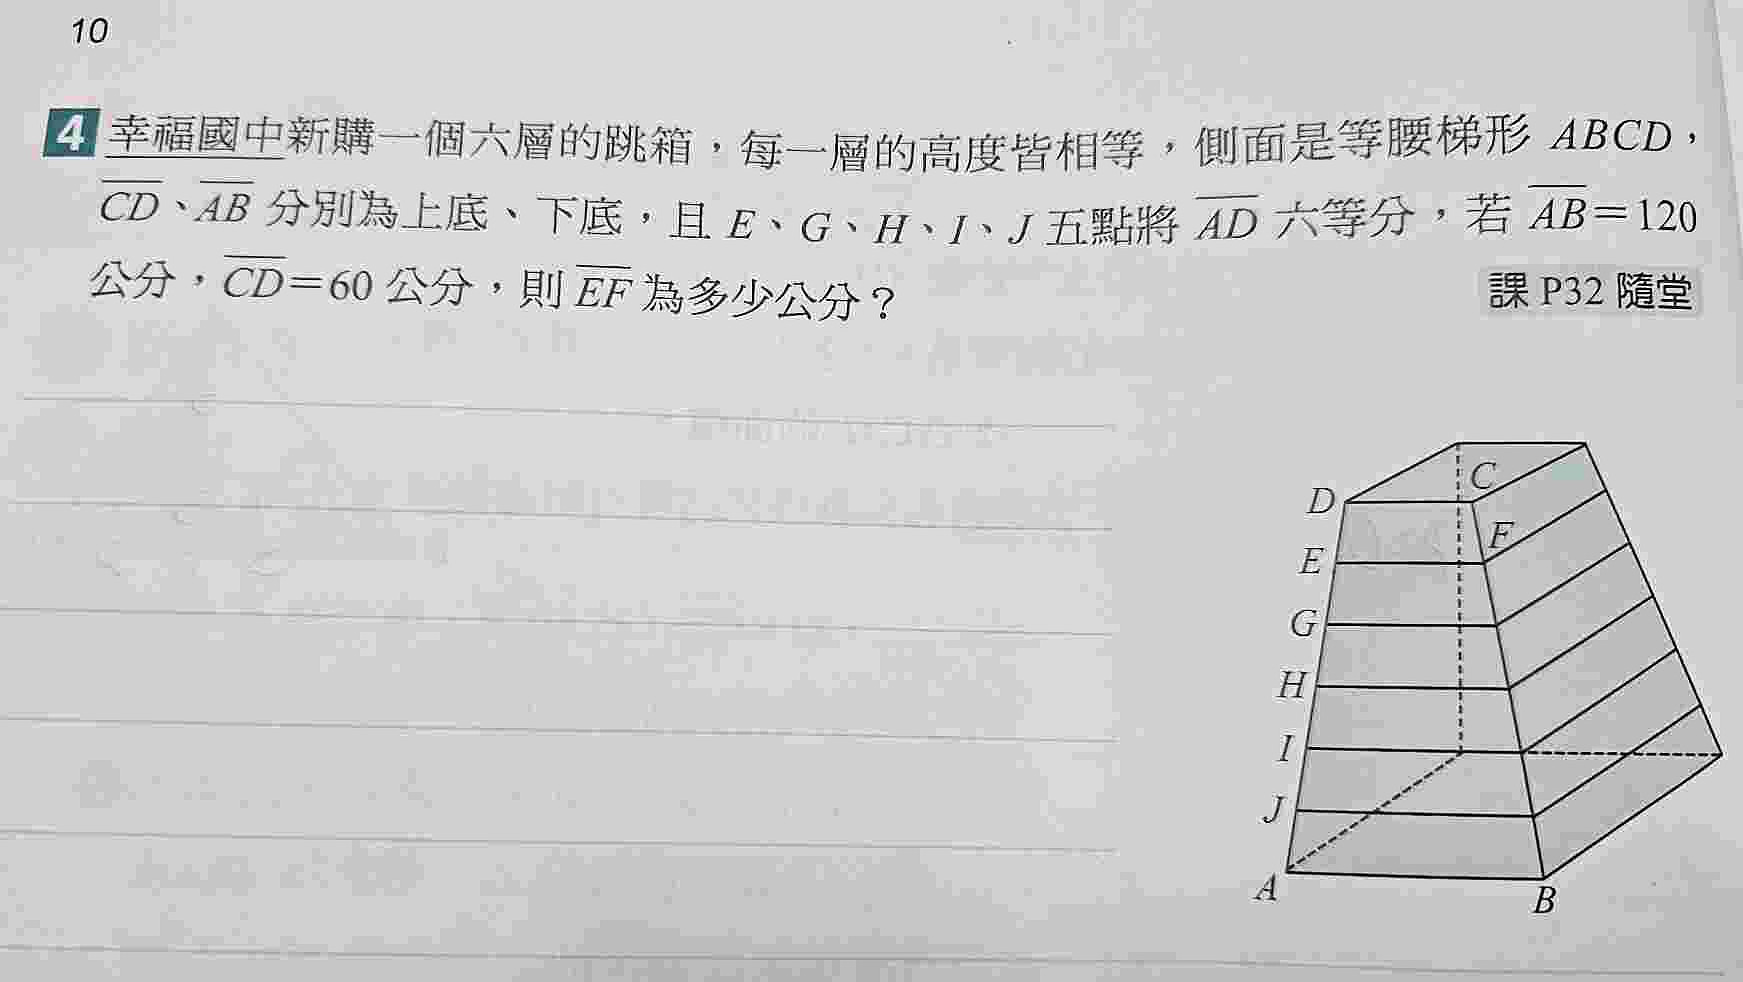 10
4 幸福國中新購一個六層的跳箱,每一層的高度皆相等,側面是等腰梯形 ABCD,
CD、AB 分別為上底、下底,且 E、G、H、I、J 五點將 AD 六等分,若 AB=120
公分,CD=60 公分,則 EF 為多少公分?
課 P32 隨堂
C
D
F
E
G
H
I
J
A
B